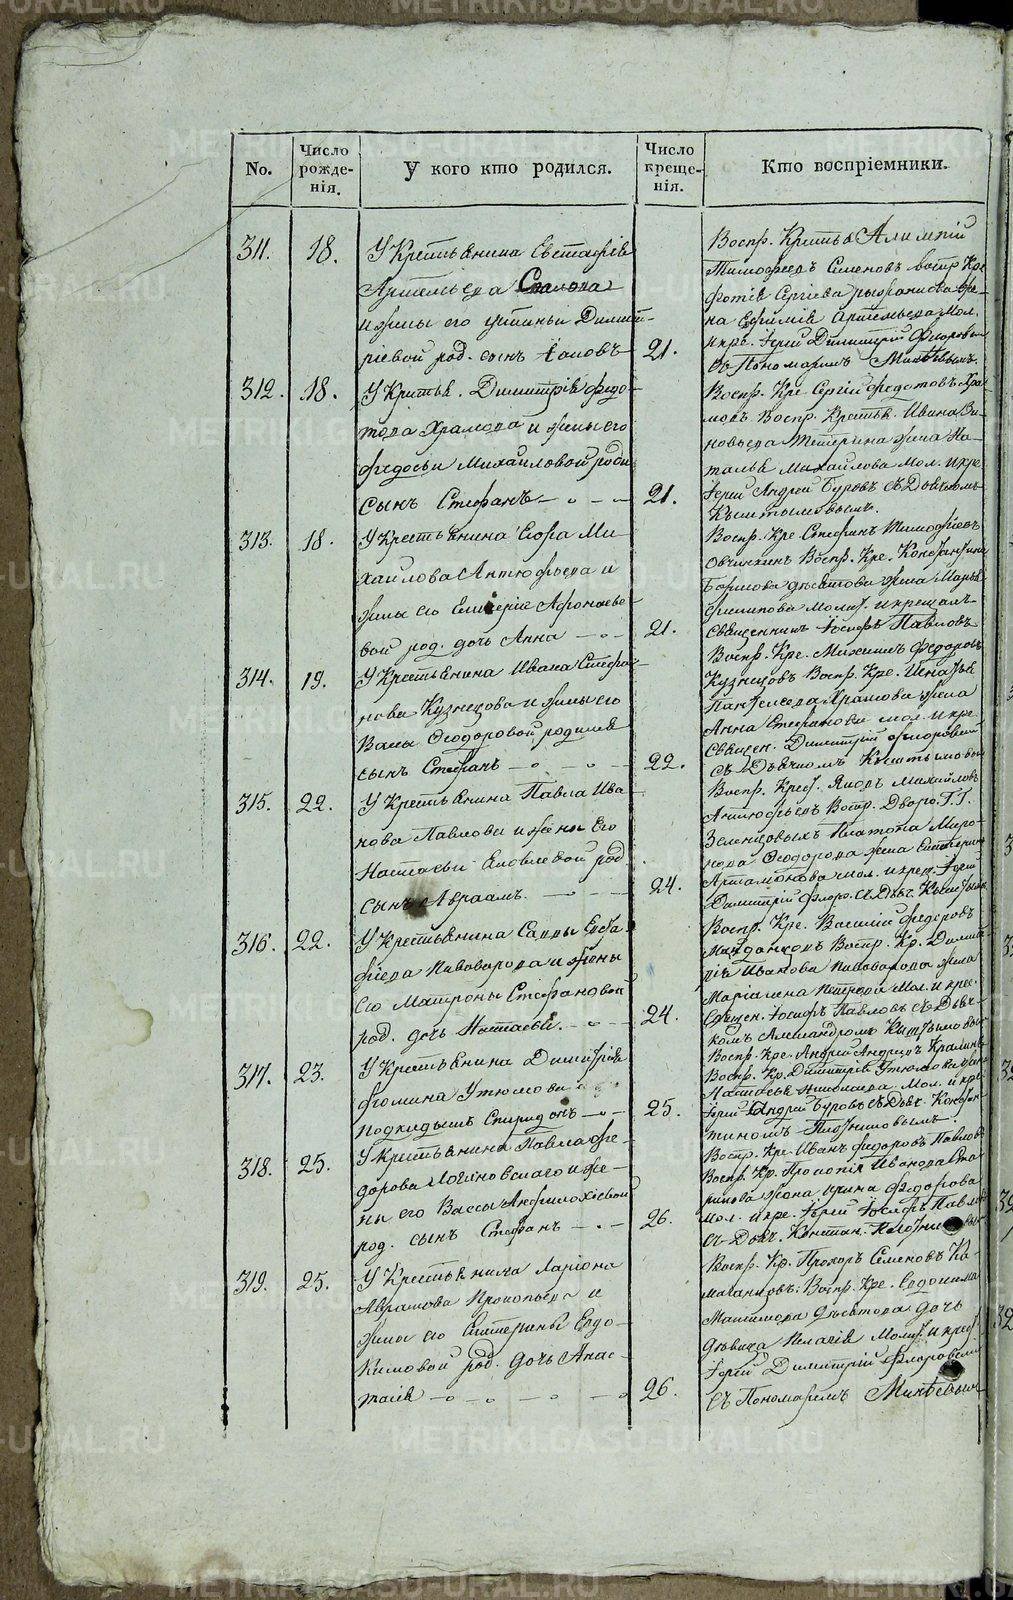 No.
Число рожденія.
У кого кто родился.
Число крещенія.
Кто воспріемники.
311. 18.
У Крестьянина Евстафія
Артемьева
и жены его Устиньи Димит-
ріевой род. сынъ Іаковъ
21.
Воспр. Крестья Алимпій
Тимофеевъ Семеновъ воспр Кре
Фотія Сергіева же-
на Ефимія Артемьева мол.
и кре. Іерей Димитрій Флоровск
съ Пономаремъ
312. 18.
У Крестья. Димитрія Федо-
това Храмова и жены его
Федосьи Михайловой роди
сынъ Стефанъ
21.
Воспр. Кре Сергій Федотовъ Хра
мовъ Воспр. Крестья. Ивана Зи-
новьева Тетерина жена На-
талья Михайлова Мол. и кре
Іерей Андрей Буровъ съ Дьячкомъ
Кыштымовымъ.
313. 18.
У Крестьянина Егора Ми-
хайлова Антюфьева и
жены его Афонасье-
вой род. дочь Анна
21.
Воспр. Кре Стефанъ Тимофеевъ
Овчинкинъ Воспр. Кре. Константина
жена Марья
Филипова Молит. и крещалъ
священникъ Іосифъ Павловъ
314. 19.
У Крестьянина Ивана Стефа-
нова Кузнецова и жены его
Вассы Феодоровой родился
сынъ Стефанъ
22.
Воспр. Кре. Михаилъ Федоровъ
Кузнецовъ Воспр. Кре. Игнатья
Пантелеева Храмова жена
Анна Стефанова мол. и кре
Священ. Димитрій Флоровскій
съ Дьячкомъ Кыштымовым
315. 22.
У Крестьянина Павла Ива-
нова Павлова и жены Его
Настасьи Яковлевой род
сынъ Авраамъ.
24.
Воспр. Крест. Яковъ Михайловъ
Антюфьевъ Воспр. Дворо. Г. Г.
Зеленцовыхъ Платона Миро-
нова Феодорова жена
Артамонова мол. и крещ. Іерей
Димитрій Флоро. съ Дьяч. Кыштым
316. 22.
У Крестьянина Саввы Евфа
фіева Пивоварова и жены
его Матроны Стефановой
род. дочь Настасья.
24.
Воспр. Кре. Василій Федоровъ
Воспр. Кр. Димит
рія Иванова Пивоварова жена
Маріамна Петрова Мол. и крес.
Священ. Іосифъ Павловъ съ Дьяч-
комъ Александромъ Кыштымовым
317. 23.
У Крестьянина Димитрія
Фомина Утюмова
подкидышъ Спиридонъ
25.
Воспр. Кре. Андрей Андреевъ
Воспр. Кр. Димитрія Утюмова
Настасья Николаева Мол. и кре
Іерей Андрей Буровъ съ Дьяч. Констан
тиномъ Плотниковымъ
318. 25.
У Крестьянина Павла Фе-
дорова Логиновскаго и же-
ны его Вассы Амфилохіевой
род. сынъ Стефанъ
26.
Воспр. Кре Иванъ Федоровъ Павлов
Воспр. Кр. Прокопія Иванова Ста
рикова жена Ирина Федорова
Мол. и кре. Іерей Іосифъ Павлов
съ Дьяч. Констан. Плотниковым
319. 25.
У Крестьянина Ларіона
Аврамова Прокопьева и
жены его Екатерины Евдо-
кимовой род. дочь Анас-
тасія
26.
Воспр. Кр. Прохоръ Семеновъ Ка-
Воспр. Кре. Евдокима
дочь
дѣвица Пелагія Молит. и крест
Іерей Димитрій Флоровскій
съ Пономаремъ
METRIKI.GASU-URAL.RU